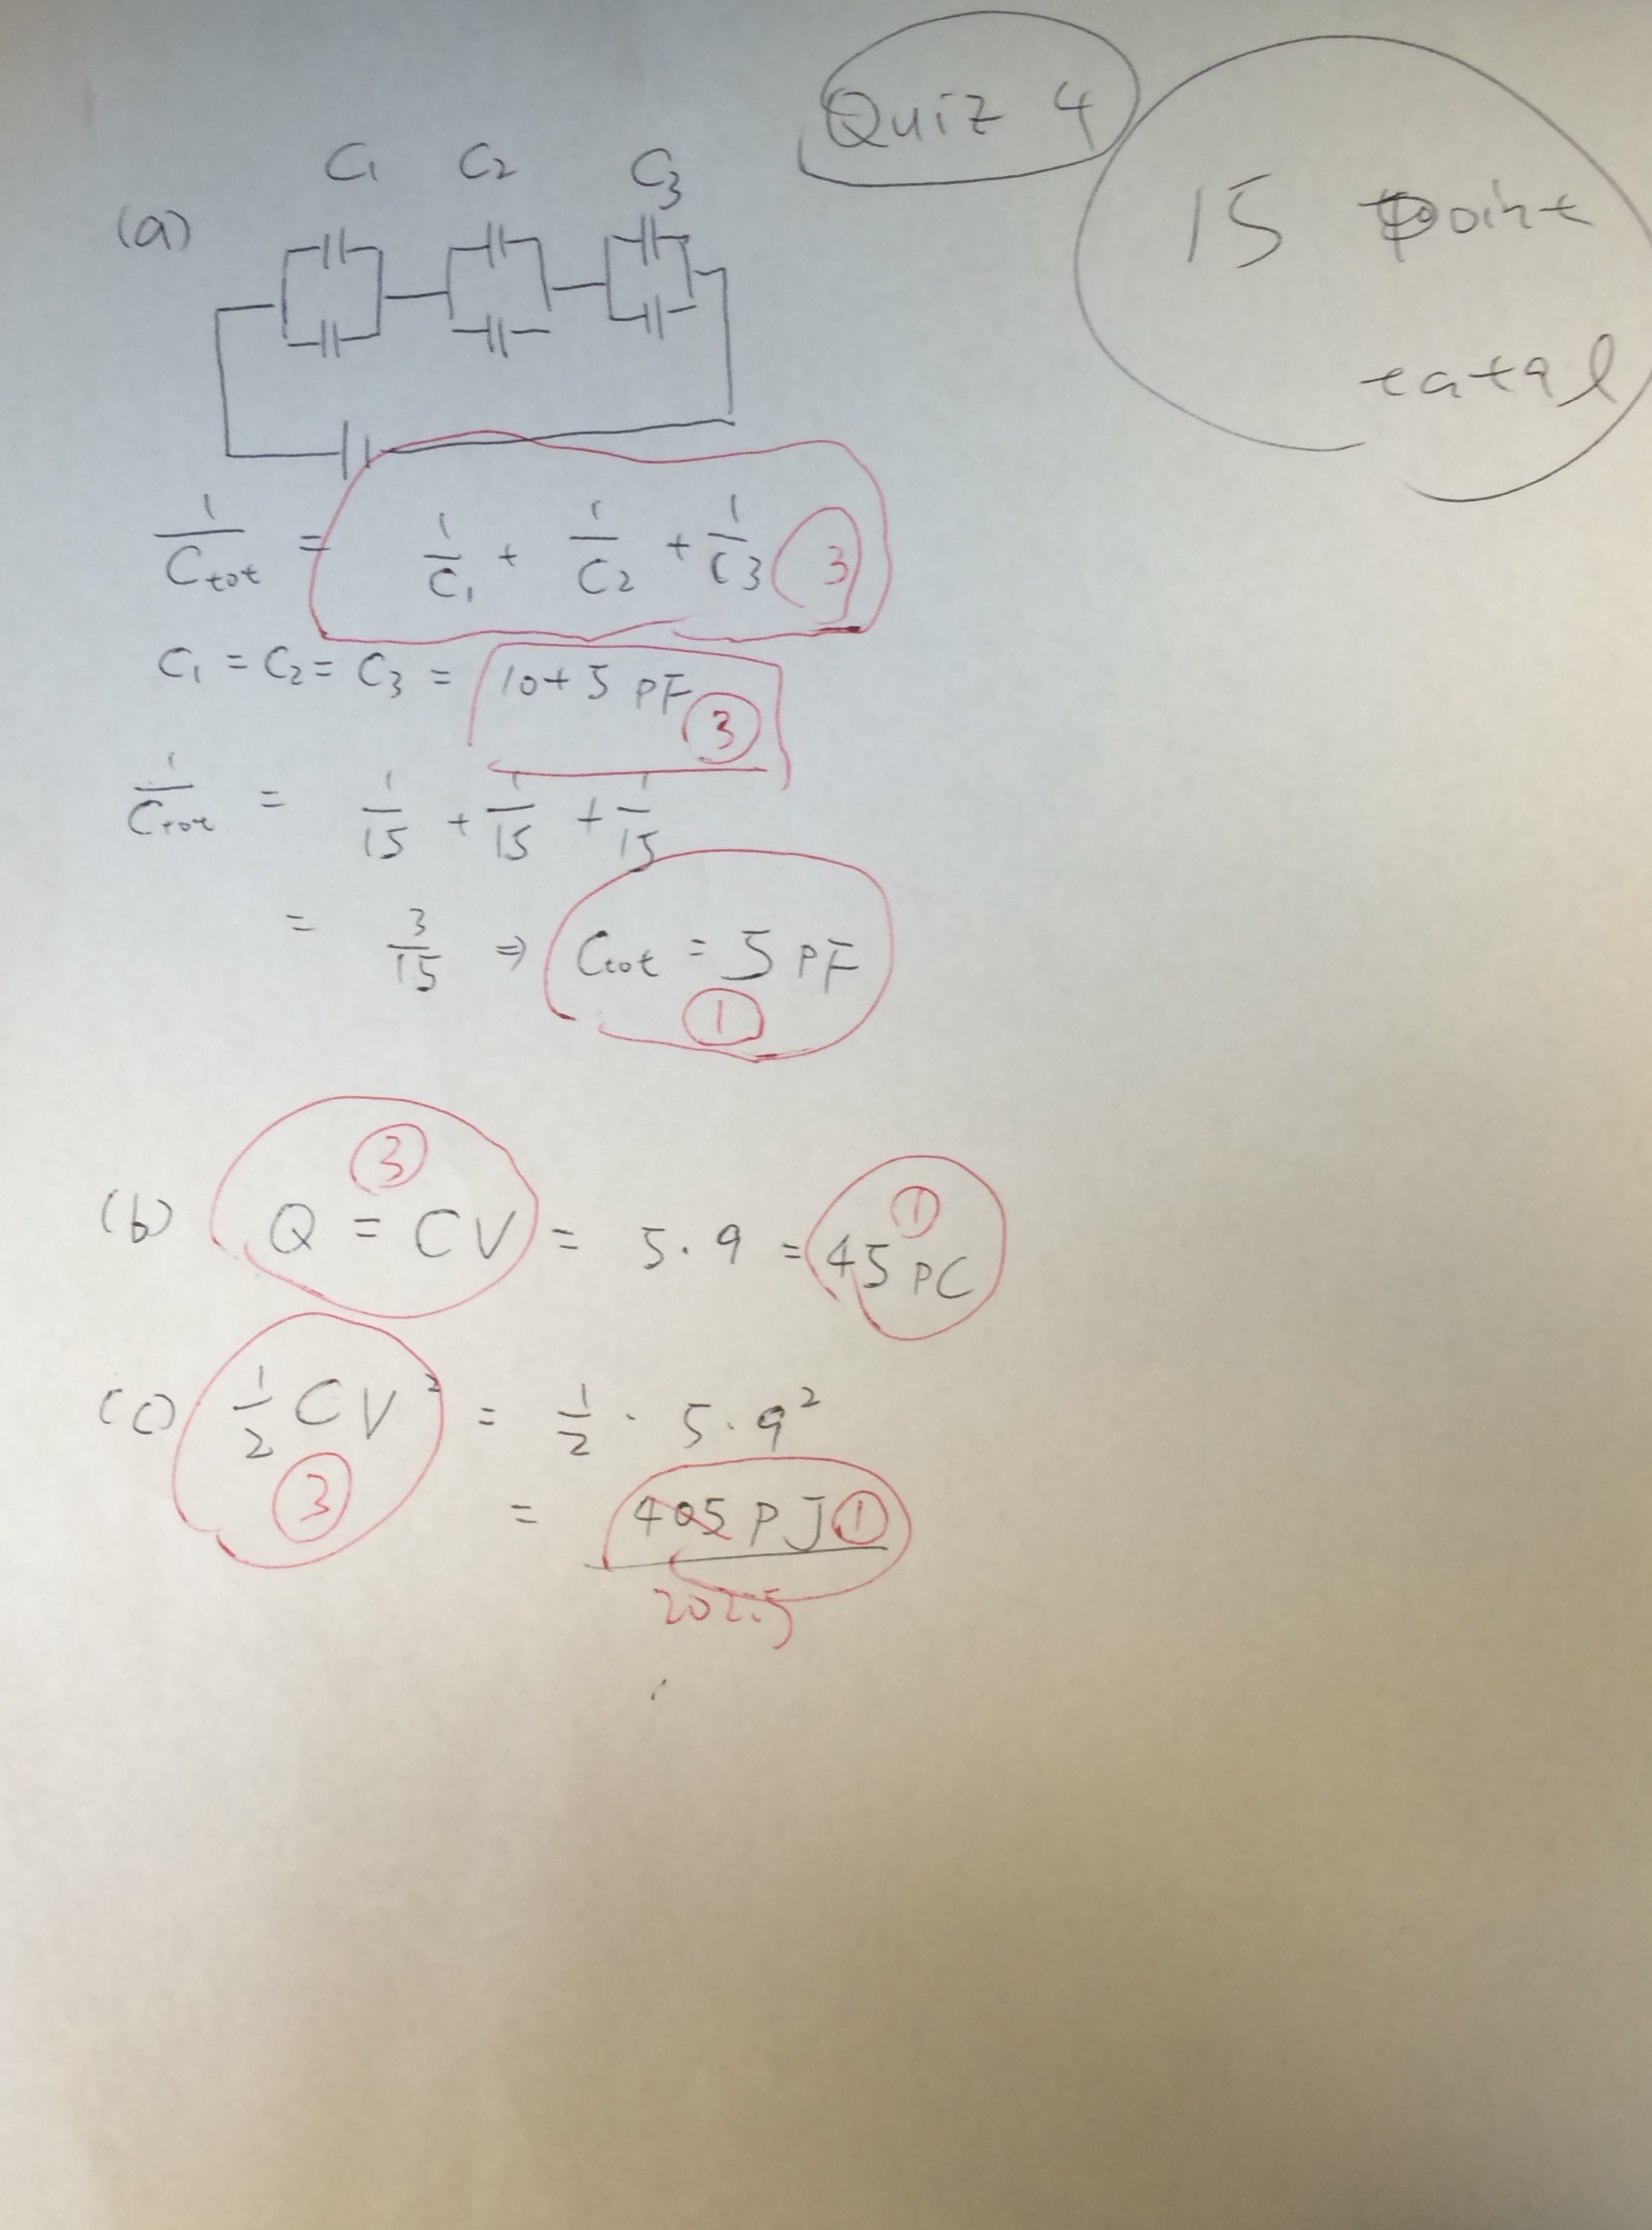 Quiz 4
15 point
tatal
C₁ C₂ C₃
(a)
1/Ctot = 1/C₁ + 1/C₂ + 1/C3 ③
C₁ = C₂ = C₃ = 10+5 PF ③
1/Ctot = 1/15 + 1/15 + 1/15
= 3/15 ⇒ Ctot = 5 PF
①
③
(b) Q = CV = 5·9 = 45 PC ①
(c) 1/2 CV² = 1/2 · 5·9²
③
= 405 PJ ①
202.5